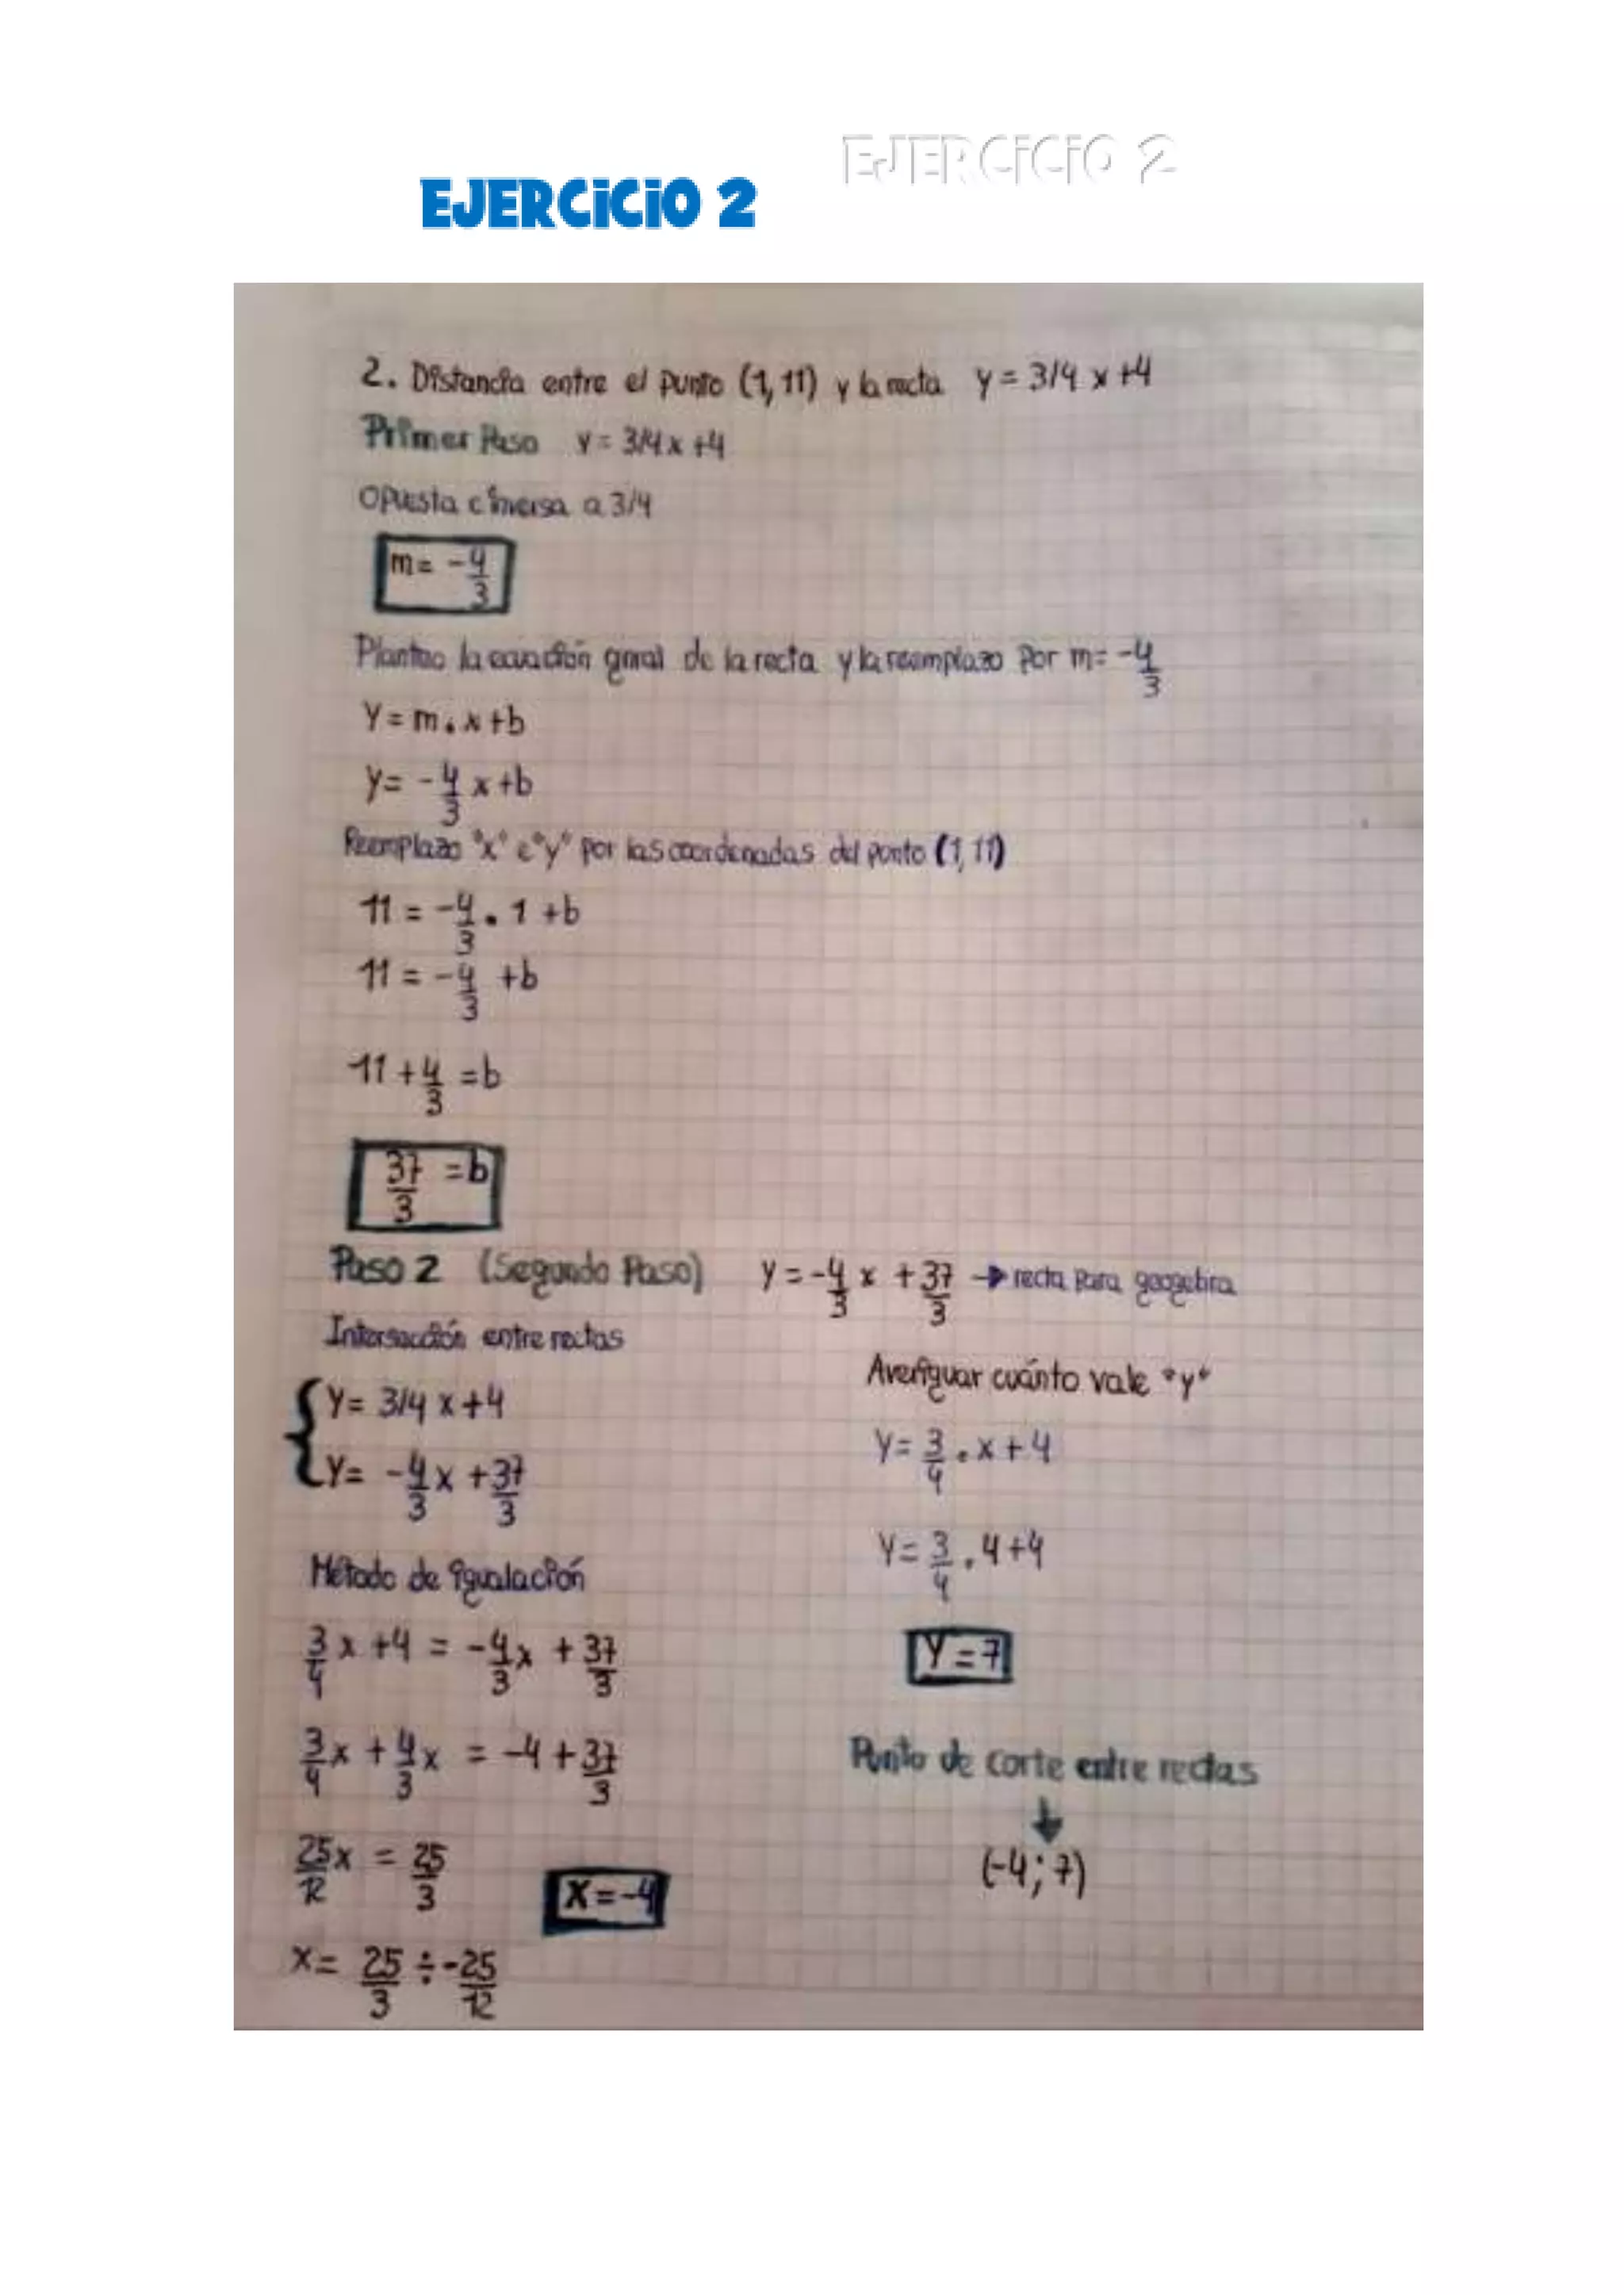 EJERCiCiO 2
EJERCiCiO 2
2. Distancia entre el punto (1, 11) y la recta y = 3/4 x +4
Primer Paso y = 3/4 x +4
Opuesta e inversa a 3/4
m = -4/3
Planteo la ecuación gnral de la recta y la reemplazo por m = -4/3
Y = m . x + b
y = -4/3 x + b
Reemplazo "x" e "y" por las coordenadas del punto (1, 11)
11 = -4/3 . 1 + b
11 = -4/3 + b
11 + 4/3 = b
37/3 = b
Paso 2 (Segundo Paso) y = -4/3 x + 37/3 → recta para geogebra
Intersección entre rectas
{ y = 3/4 x + 4
y = -4/3 x + 37/3
Método de igualación
3/4 x + 4 = -4/3 x + 37/3
3/4 x + 4/3 x = -4 + 37/3
25/12 x = 25/3
x = -4
x = 25/3 ÷ -25/12
Averiguar cuánto vale "y"
y = 3/4 . x + 4
y = 3/4 . 4 + 4
Y = 7
Punto de corte entre rectas
↓
(-4; 7)